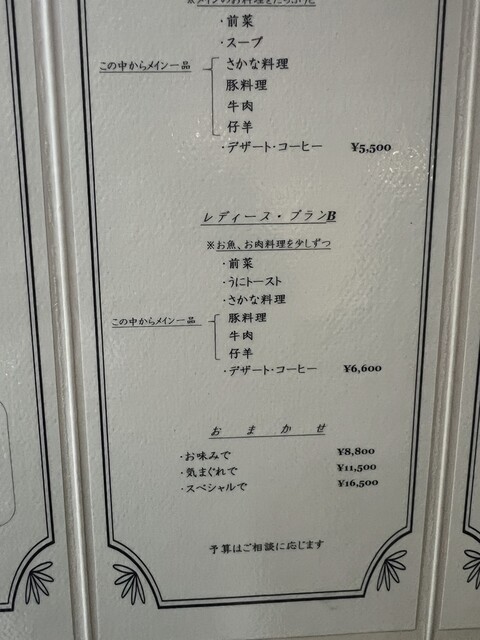 ※メインのお料理をたっぷりと
・前菜
・スープ
この中からメイン一品
さかな料理
豚料理
牛肉
仔羊
・デザート・コーヒー ¥5,500
レディース・プランB
※お魚、お肉料理を少しずつ
・前菜
・うにトースト
・さかな料理
この中からメイン一品
豚料理
牛肉
仔羊
・デザート・コーヒー ¥6,600
おまかせ
・お味みで ¥8,800
・気まぐれで ¥11,500
・スペシャルで ¥16,500
予算はご相談に応じます